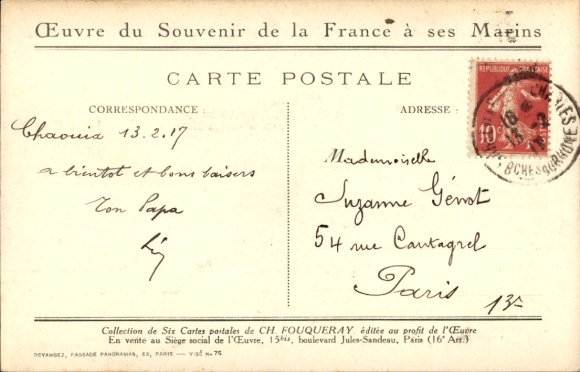 Œuvre du Souvenir de la France à ses Marins
CARTE POSTALE
CORRESPONDANCE :
Chaouia 13.2.17
a bientot et bons baisers
Ton Papa
ADRESSE :
Mademoiselle
Suzanne Génot
54 rue Cantagrel
Paris
13e
REPUBLIQUE FRANCAISE
10c
POSTES
BCHES DU RHONE
Collection de Six Cartes postales de CH. FOUQUERAY éditée au profit de l'Œuvre
En vente au Siège social de l'Œuvre, 15bis, boulevard Jules-Sandeau, Paris (16e Arr.)
DEVAMBEZ, PASSAGE PANORAMAS, 63, PARIS — VISÉ N. 75